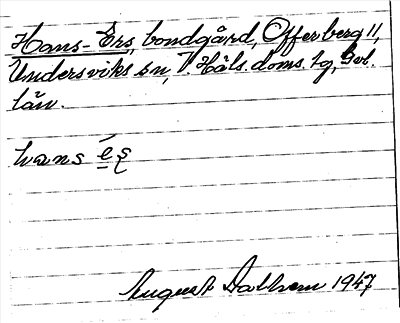 Hans-Ers, bondgård, Offerberg 11,
Undersviks sn, V. Häls. doms. tg, Gvl.
län.
hans
August Dahlbom 1947